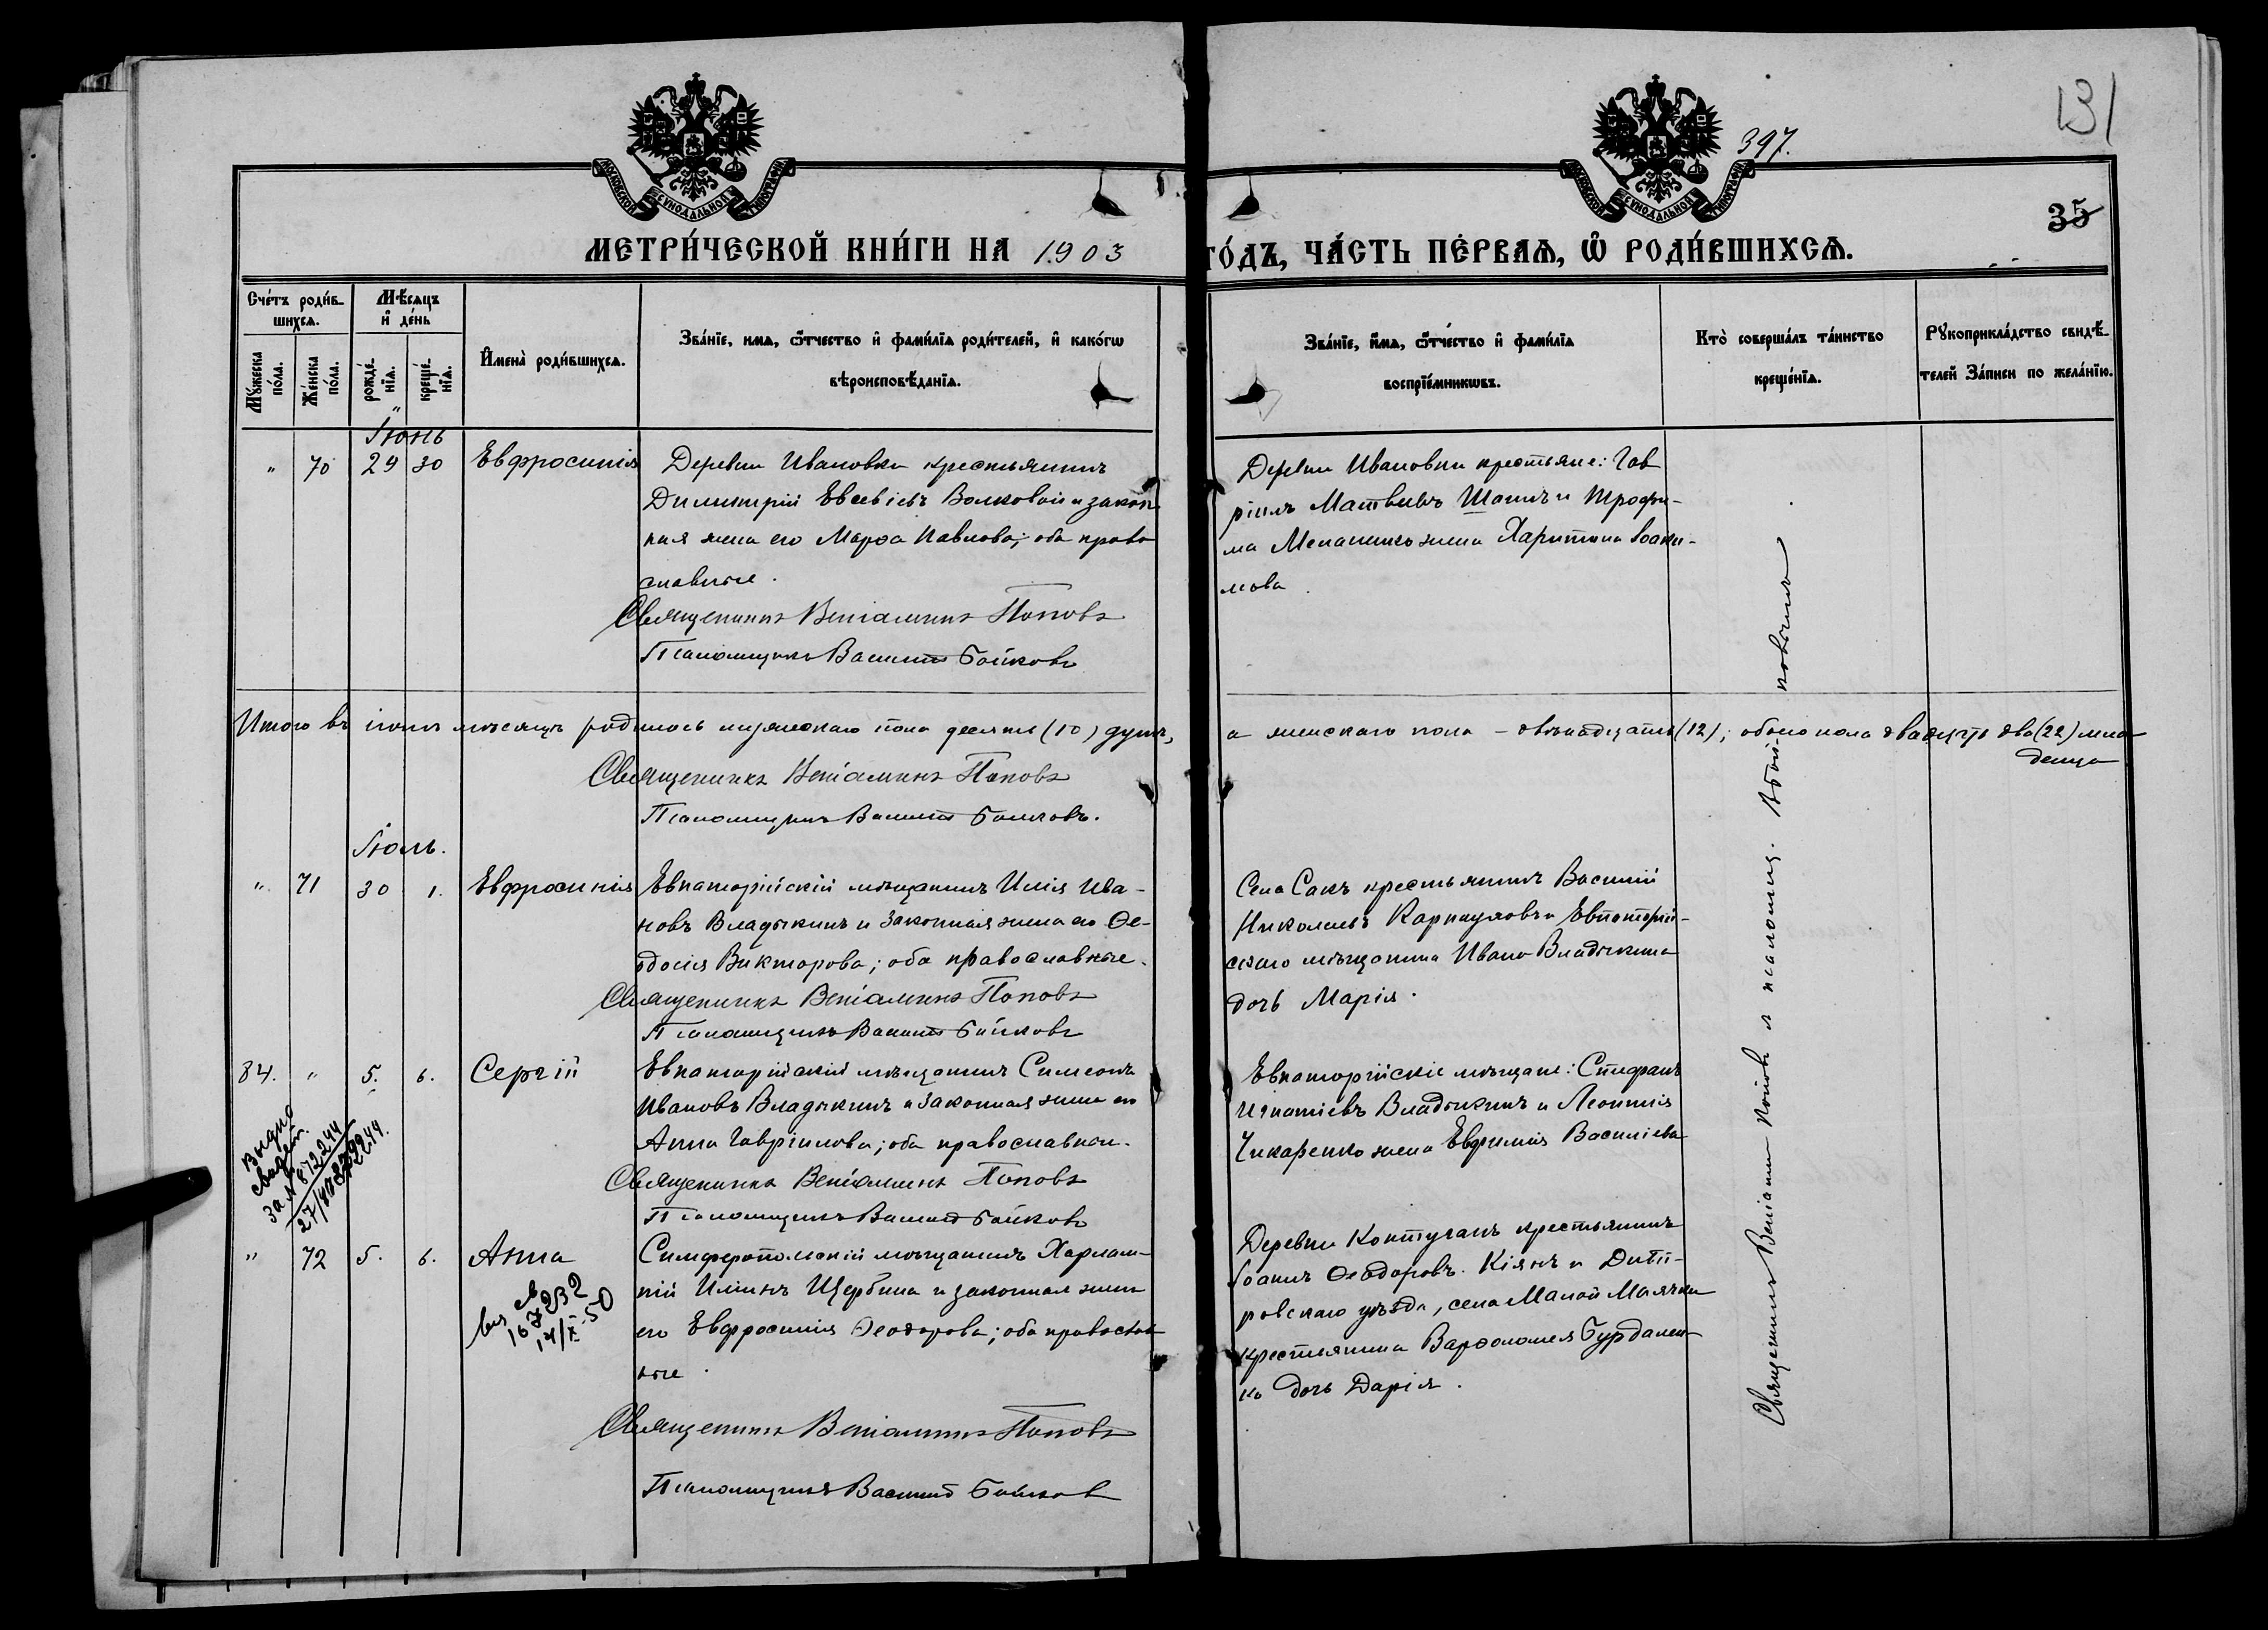 397.
131
35
МОСКОВСКОЙ СУНОДАЛЬНОЙ ТИПОГРАФІИ
МОСКОВСКОЙ СУНОДАЛЬНОЙ ТИПОГРАФІИ
МЕТРИ́ЧЕСКОЙ КНИ́ГИ НА 1903
ГО́ДЪ, ЧА́СТЬ ПЕ́РВАЯ, Ѡ РОДИ́ВШИХСЯ.
Сче́тъ роди́в-
шихся.
Му́жеска по́ла.
Же́нска по́ла.
Мѣ́сяцъ
и де́нь
рожде́-
нїя.
креще́-
нїя.
Имена̀ роди́вшихся.
Зва́нїе, имя, ѻ́тчество и фами́лїя роди́телей, и како́гѡ
вѣроисповѣ́данїя.
Зва́нїе, имя, ѻ́тчество и фами́лїя
воспрїе́мникѡвъ.
Кто̀ соверша́лъ та́инство
креще́нїя.
Рꙋкоприкла́дство свидѣ́-
телей За́писи по жела́нїю.
Іюнь
" 70 29 30 Евфросинія
Деревни Ивановки крестьянинъ
Димитрій Евсевіевъ Волковой и закон
ная жена его Марѳа Павлова; оба право
славные.
Священникъ Веніаминъ Поповъ
Псаломщикъ Василій Бойковъ
Деревни Ивановки крестьяне: Гав
ріилъ Матвеевъ и Трофи-
ма жена Харитина Іоаки-
мова.
Итого въ іюнѣ мѣсяцѣ родилось мужескаго пола десять (10) душъ,
а женскаго пола - двѣнадцать (12); обоего пола двадцать два (22) мла
денца
Священникъ Веніаминъ Поповъ
Псаломщикъ Василій Бойковъ.
Іюль.
" 71 30 1. Евфросинія
Евпаторійскій мѣщанинъ Илія Ива-
новъ Владыкинъ и законная жена его Ѳе-
одосія Викторова; оба православные.
Священникъ Веніаминъ Поповъ
Псаломщикъ Василій Бойковъ
Села Сакъ крестьянинъ Василій
Николаевъ и Евпаторій-
скаго мѣщанина Ивана Владыкина
дочь Марія.
84. " 5. 6. Сергій
Евпаторійскій мѣщанинъ Симеонъ
Ивановъ Владыкинъ и законная жена его
Анна Гавріилова; оба православные.
Священникъ Веніаминъ Поповъ
Псаломщикъ Василій Бойковъ
Евпаторійскіе мѣщане: Стефанъ
Игнатіевъ Владыкинъ и Леонтія
Чикаренко жена Евфимія Василіева
Выдано
свидет.
за №
" 72 5. 6. Анна
Симферопольскій мѣщанинъ Харлам-
пій Иліинъ Щербина и законная жена
его Евфросинія Ѳеодорова; оба православ
ные.
Священникъ Веніаминъ Поповъ
Псаломщикъ Василій Бойковъ
Деревни Контуганъ крестьянинъ
Іоаннъ Ѳеодоровъ Кіянъ и Днѣп-
ровскаго уѣзда, села Малой Маячки
крестьянина Варѳоломея Бурдален-
ко дочь Дарія.
167232
14/X-50
Священникъ Веніаминъ Поповъ и псаломщ. Василій Бойковымъ